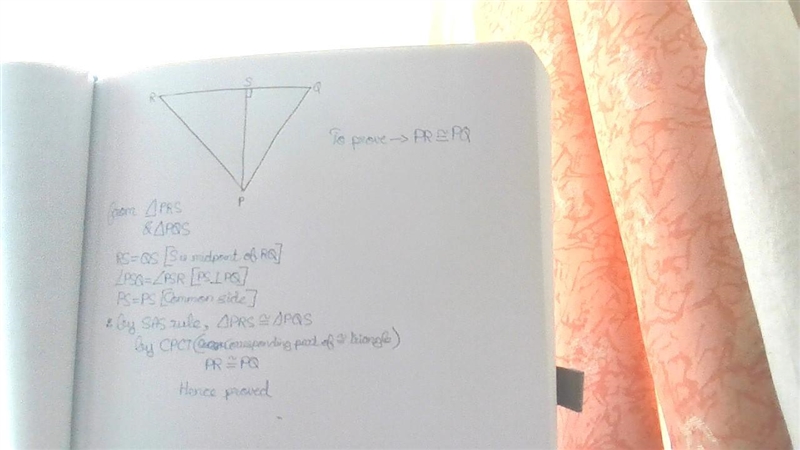 R S Q
To prove → PR ≅ PQ
P
from △PRS
& △PQS
RS = QS [S is midpoint of RQ]
∠PSQ = ∠PSR [PS ⊥ PQ]
PS = PS [Common side]
by SAS rule, △PRS ≅ △PQS
by CPCT (corresponding part of ≅ triangle)
PR ≅ PQ
Hence proved